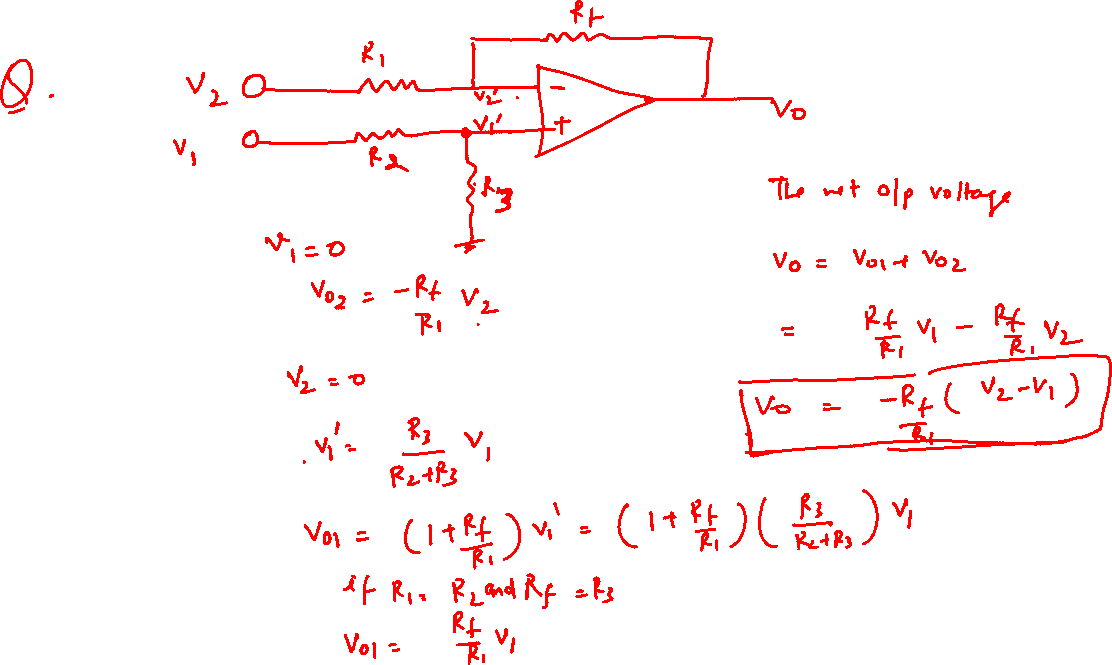 Q.
Rf
R1
V2
V2'
-
V0
V1
V1'
+
R2
R3
V1 = 0
V02 = -Rf/R1 V2
V2 = 0
V1' = R3/(R2+R3) V1
V01 = (1+Rf/R1) V1' = (1+Rf/R1)(R3/(R2+R3)) V1
if R1 = R2 and Rf = R3
V01 = Rf/R1 V1
The net o/p voltage
V0 = V01 + V02
= Rf/R1 V1 - Rf/R1 V2
V0 = -Rf/R1 (V2-V1)